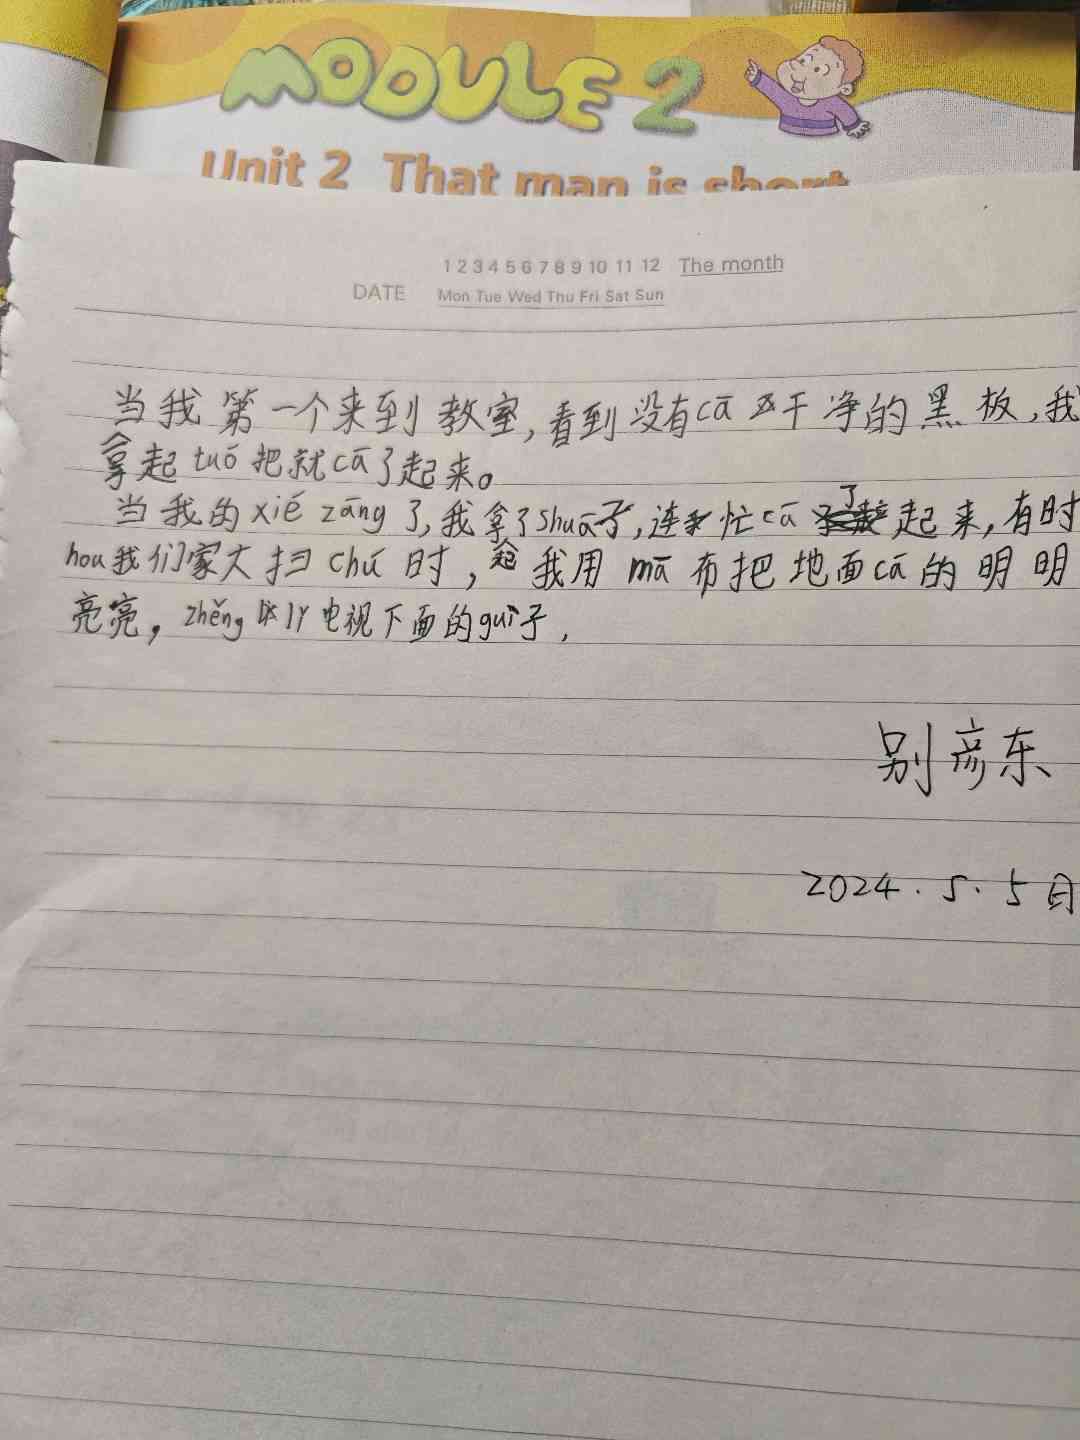 MODULE 2
Unit 2 That man is short
1 2 3 4 5 6 7 8 9 10 11 12 The month
DATE Mon Tue Wed Thu Fri Sat Sun
当我第一个来到教室,看到没有cā干净的黑板,我
拿起tuō把就cā了起来。
当我的xié zāng了,我拿了shuā子,连忙cā了起来,有时
hou我们家大扫chú时,我用mā布把地面cā的明明
亮亮,zhěng 电视下面的guì子,
别彦东
2024.5.5日